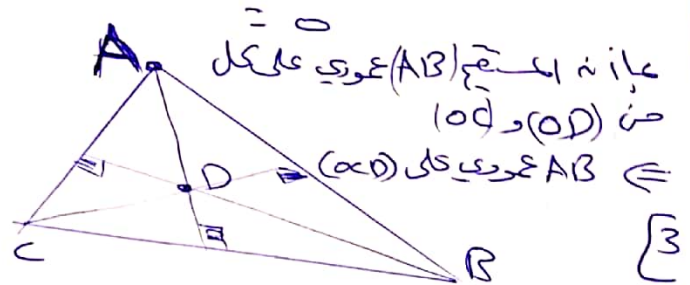 = 0
بما أن المستقيم (AB) عمودي على كل
من (OD) و (OC)
⇐ AB عمودي على (OCD)
[3
A
D
C
B